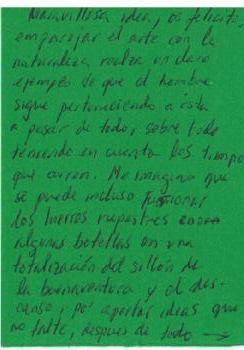 Maravillosa idea, os felicito,
emparejar el arte con la
naturaleza realza un claro
ejemplo de que el hombre
sigue perteneciendo a ésta
a pesar de todo, sobre todo
teniendo en cuenta los tiempos
que corren. Me imagino que
se puede incluso fusionar
los hierros rupestres
algunas botellas en una
totalización del sillón de
la buenaventura y el des-
canso, por aportar ideas que
no falte, después de todo →